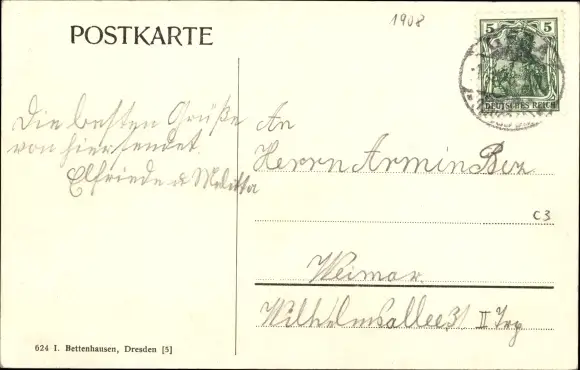 1908
POSTKARTE
5 5
DEUTSCHES REICH
Die besten Grüße
von hier sendet
Elfriede u Melitta
An
Herrn Armin Bez
C3
Weimar.
Wilhelmsallee 31 II Trp
624 I. Bettenhausen, Dresden [5]